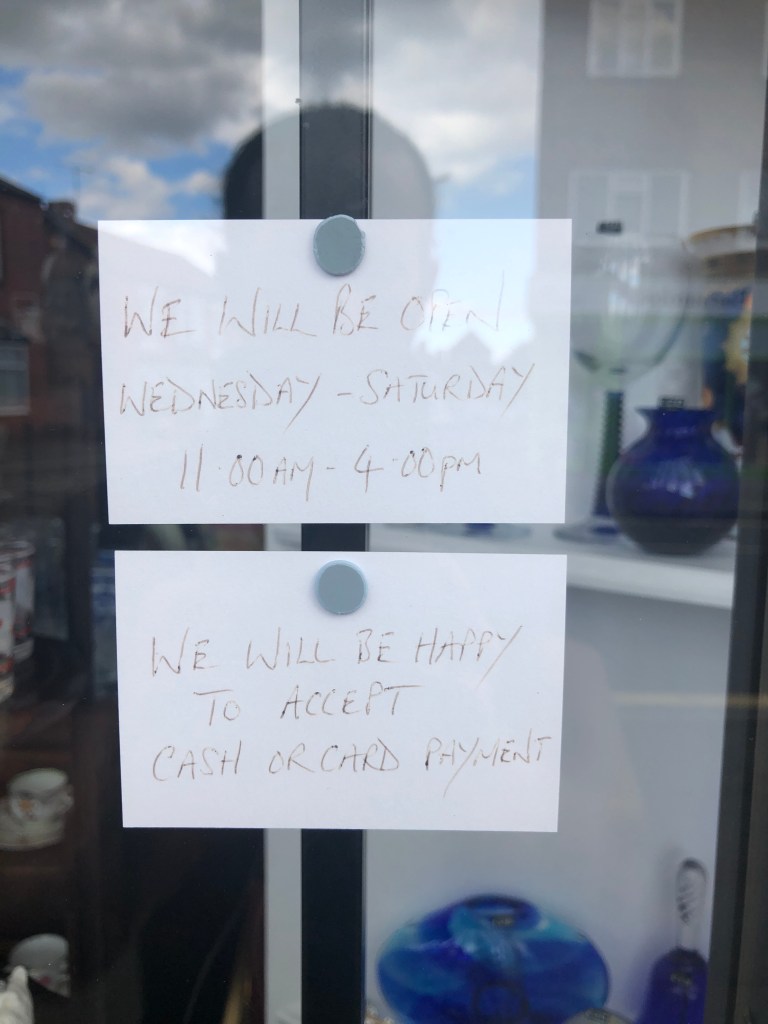 WE WILL BE OPEN
WEDNESDAY - SATURDAY
11.00AM - 4.00PM
WE WILL BE HAPPY
TO ACCEPT
CASH OR CARD PAYMENT